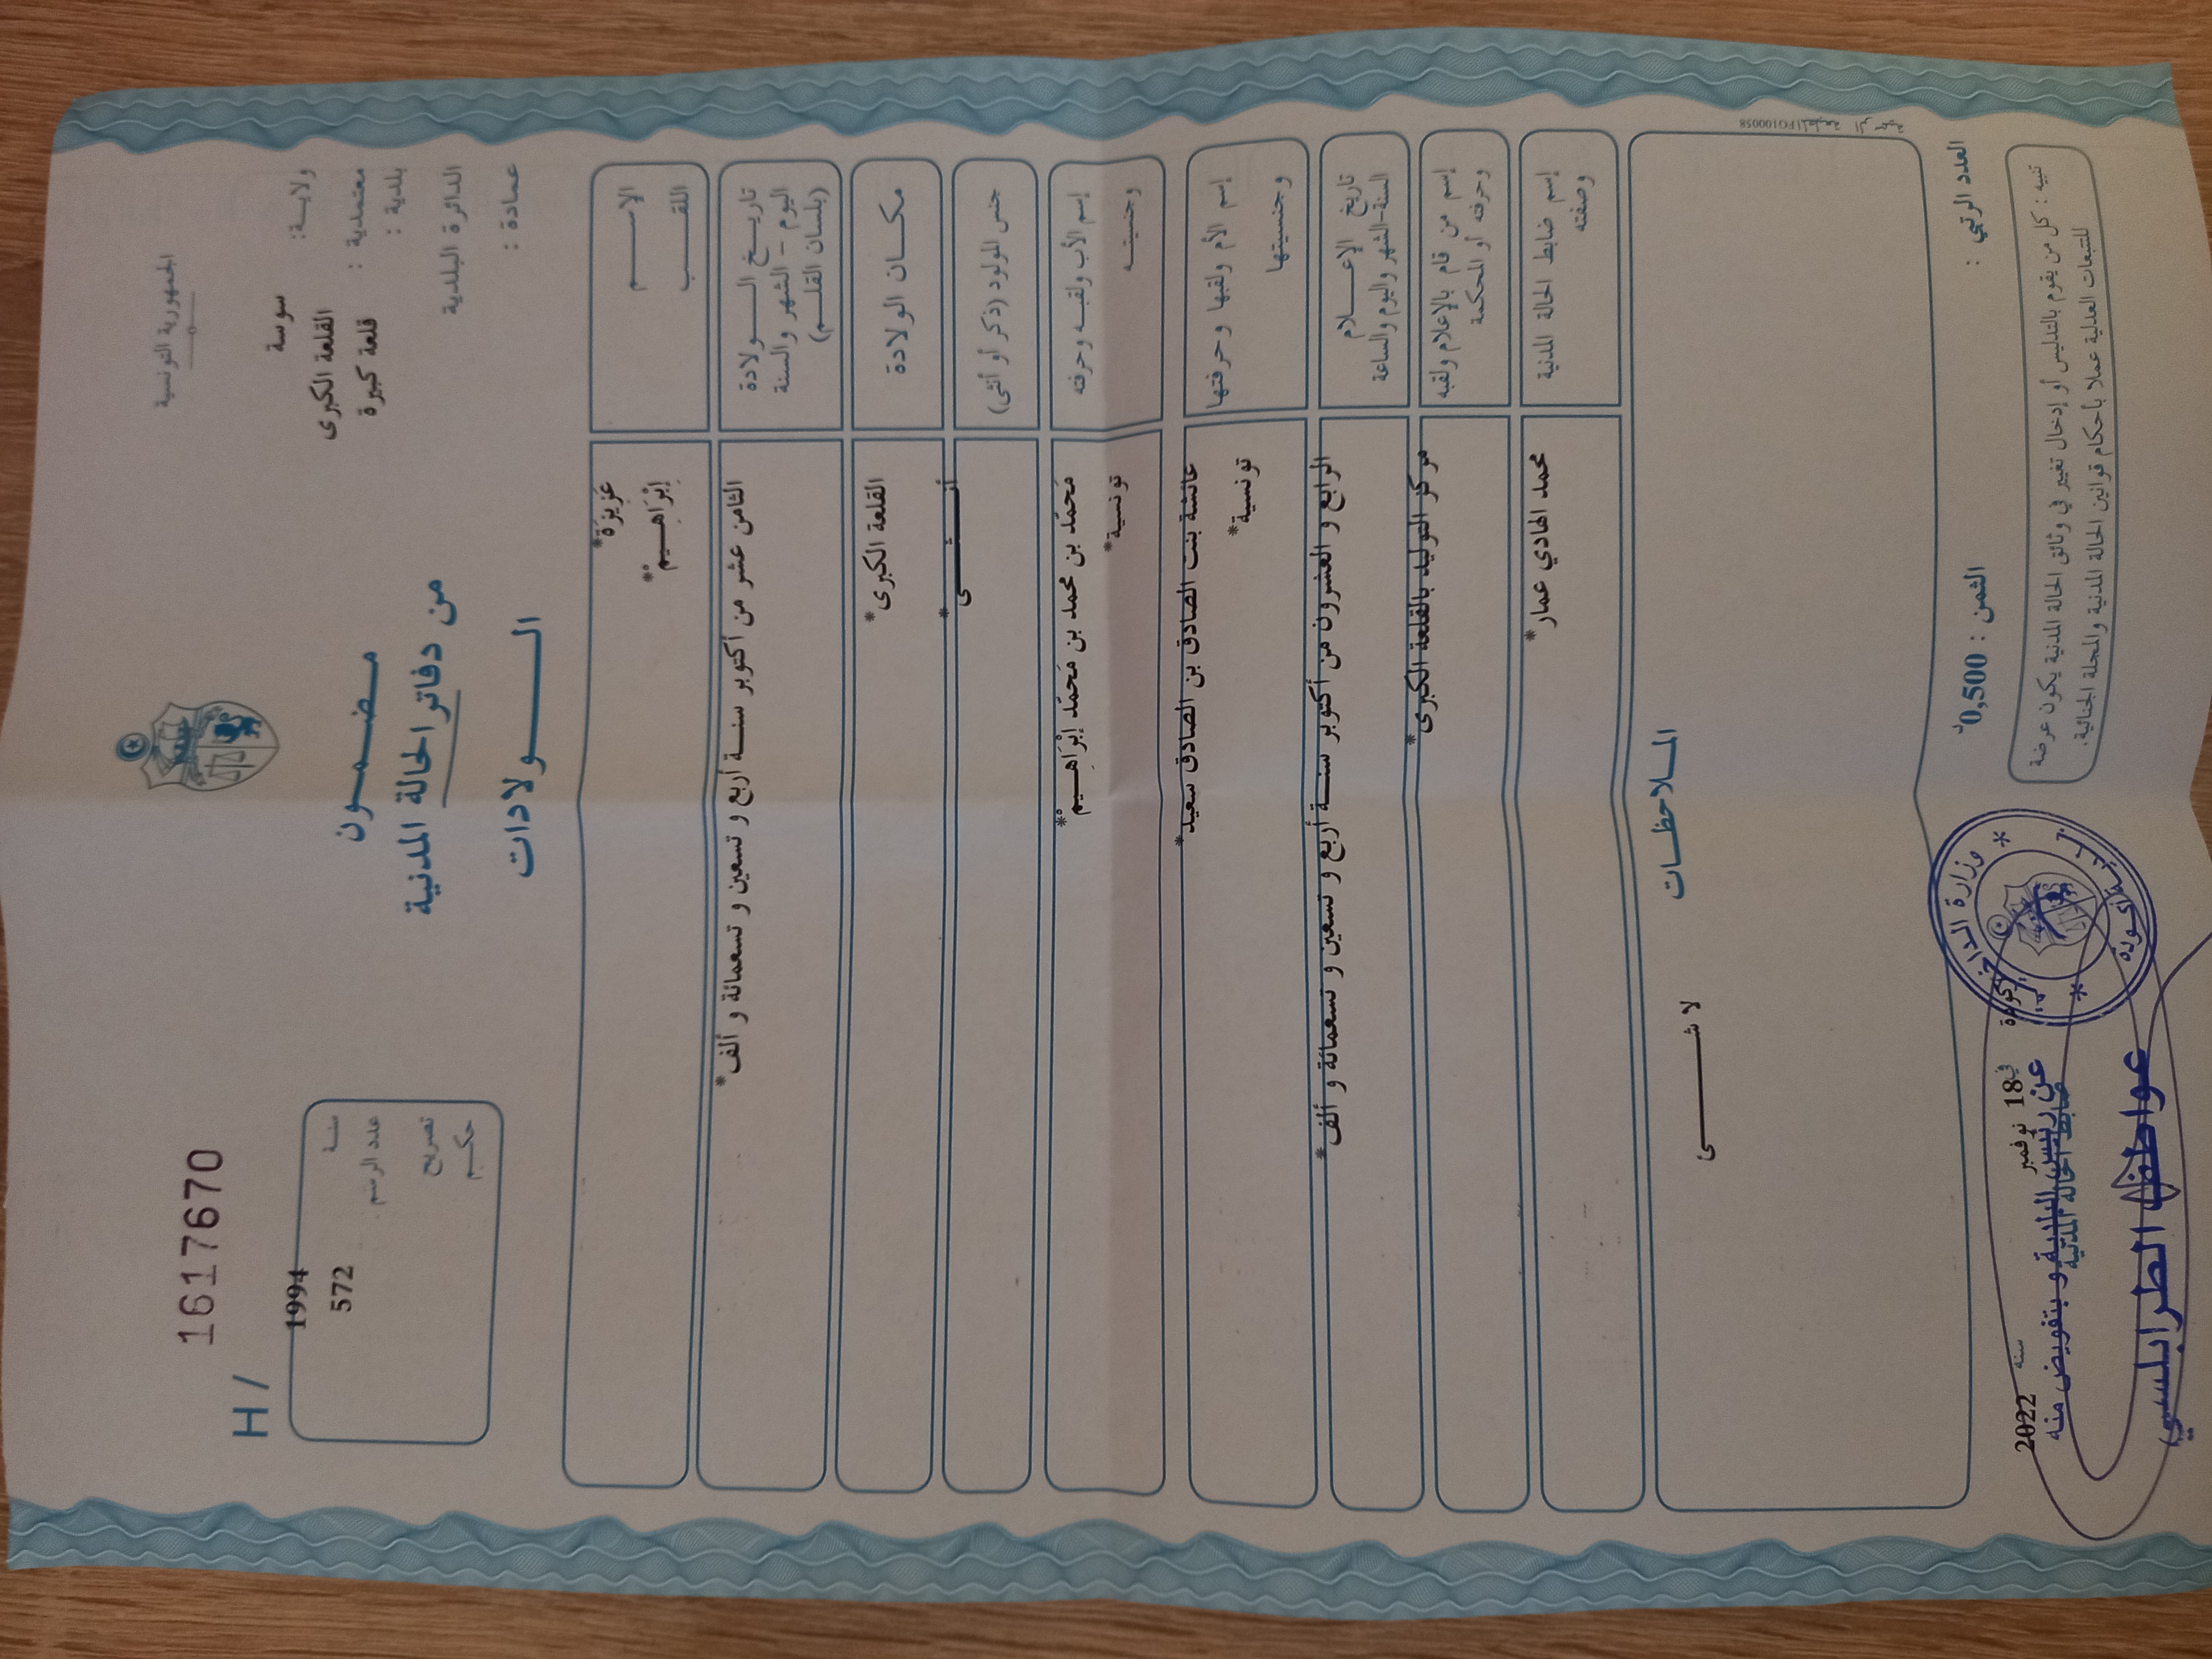 الجمهورية التونسية
1617670
H /
ولايـة: سوسة
معتمدية : القلعة الكبرى
بلدية : قلعة كبيرة
الدائرة البلدية
عمادة :
مـضـمـون
من دفاتر الحالة المدنية
الـــولادات
سنـة 1994
عدد الرسم 572
تصريح
حكـم
الإســـم عَزِيزَة*
اللقـــب إِبْرَاهِـــيمْ*
تاريـخ الـــولادة
اليوم – الشهر والسنة
(بلسان القلـم)
الثامن عشر من أكتوبر سنـــة أربع و تسعين و تسعمائة و ألف*
مكـــان الولادة القلعة الكبرى*
جنس المولود (ذكر أو أنثى) أنـــثـــى*
إسم الأب ولقبـه وحرفته مَحمّد بن محمد بن مَحمّد إِبْرَاهِـــيمْ*
وجنسيتـــه تونسية*
إسم الأم ولقبها وحرفتها عائشة بنت الصادق بن الصادق سعيد*
وجنسيتها تونسية*
تاريخ الإعـــلام
السنة-الشهر واليوم والساعة
الرابع و العشرون من أكتوبر سنـــة أربع و تسعين و تسعمائة و ألف*
إسم من قام بالإعلام ولقبه
وحرفته أو المحكمة
مركز التوليد بالقلعة الكبرى*
إسم ضابط الحالة المدنية
وصفته
محمد الهادي عمار*
المـلاحظـات
لا شـــــئ
العدد الرتبي :
الثمن : 0,500د
تنبيه : كل من يقوم بالتدليس أو إدخال تغيير في وثائق الحالة المدنية يكون عرضة
للتتبعات العدلية عملا بأحكام قوانين الحالة المدنية والمجلة الجنائية.
المطبعة الرسمية FG100058
أكودة في 18 نوفمبر سنة 2022
ضابط الحالة المدنية
عن رئيس البلدية و بتفويض منه
عواطف الطرابلسي
وزارة الداخلية
بلدية أكودة